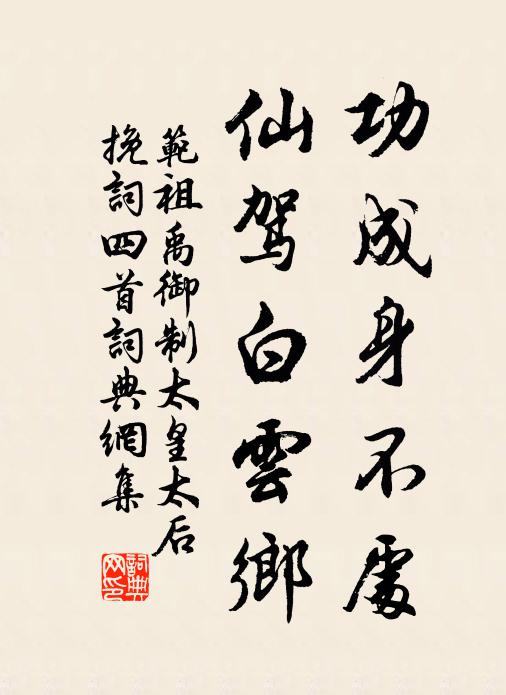 功成身不處
仙駕白雲鄉
範祖禹御制太皇太后
挽詞四首詞典網集
詞典
网印